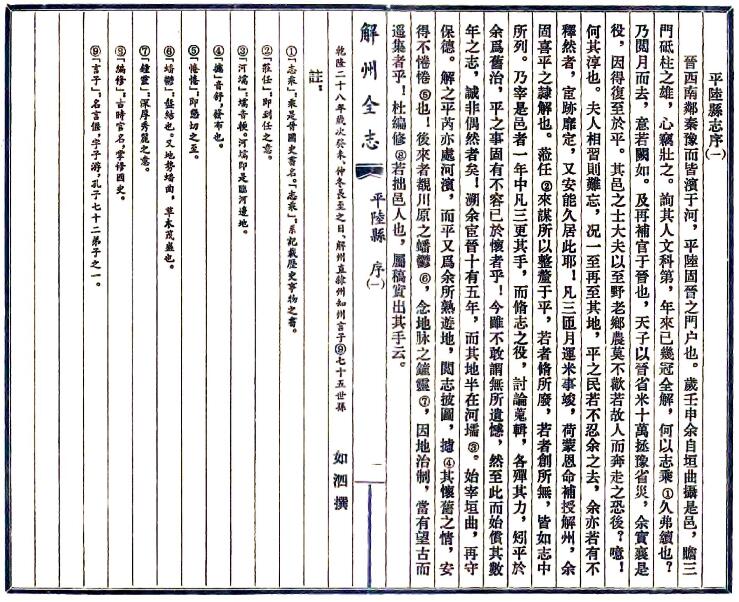 平陸縣志序㈠
晉西南鄰秦豫而皆濱于河，平陸固晉之門户也。歲壬申余自垣曲攝是邑，瞻三
門砥柱之雄，心竊壯之。詢其人文科第，年來已幾冠全解，何以志乘①久弗續也？
乃閲月而去，意若闕如。及再補官于晉也，天子以晉省米十萬拯豫省災，余實襄是
役，因得復至於平。其邑之士大夫以至野老鄉農莫不歡若故人而奔走之恐後？噫！
何其淳也。夫人相習則難忘，况一至再至其地，平之民若不忍余之去，余亦若有不
釋然者，宦跡靡定，又安能久居此耶！凡三匝月運米事竣，荷蒙恩命補授解州，余
固喜平之隷解也。蒞任②來謀所以整釐于平，若者脩所廢，若者創所無，皆如志中
所列。乃宰是邑者一年中凡三更其手，而脩志之役，討論蒐輯，各殫其力，矧平於
余爲舊治，平之事固有不容已於懷者乎！今雖不敢謂無所遺憾，然至此而始償其數
年之志，誠非偶然者矣！溯余宦晉十有五年，而其地半在河壖③。始宰垣曲，再守
保德。解之平芮亦處河濱，而平又爲余所熟遊地，閲志披圖，攄④其懷舊之情，安
得不惓惓⑤也！後來者覩川原之蟠鬱⑥，念地脉之鐘靈⑦，因地治制，當有望古而
遥集者乎！杜編修⑧若拙邑人也，屬稿實出其手云。
解州全志
平陸縣 序㈠
一
乾隆二十八年歲次癸未、仲冬長至之日、解州直隸州知州言子⑨七十五世孫
如泗撰
註：
①「志乘」：乘是晉國史書名。「志乘」：系記載歷史事物之書。
②「蒞任」：即到任之意。
③「河壖」：壖音軟。河壖即是臨河邊地。
④「攄」音舒，發布也。
⑤「惓惓」：即懇切之至。
⑥「蟠鬱」：盤結也。又地勢蟠曲，草木茂盛也。
⑦「鐘靈」：深厚秀麗之意。
⑧「編修」：古時官名，掌修國史。
⑨「言子」：名言偃，字子游，孔子七十二弟子之一。